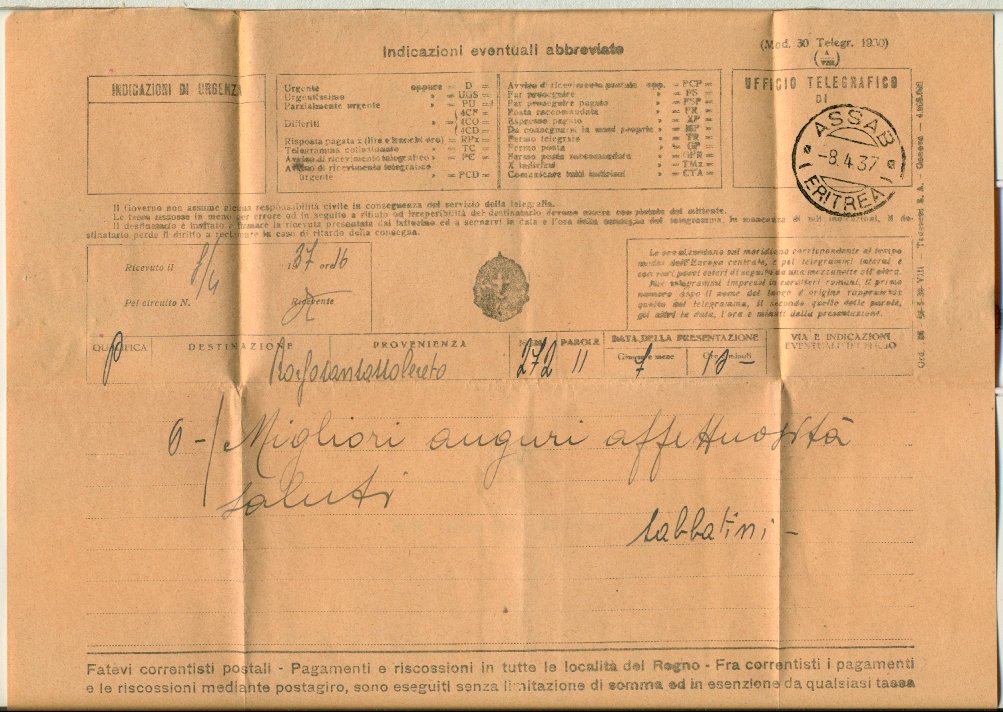 Indicazioni eventuali abbreviate
(Mod. 30 Telegr. 1930)
INDICAZIONI DI URGENZA
Urgente oppure = D =
Urgentissimo » = UUS =
Parzialmente urgente » = PU =
Differiti
Risposta pagata x
Telegramma collazionato » = TC =
Avviso di ricevimento telegrafico » = PC =
Avviso di ricevimento telegrafico
urgente » = PCD =
Avviso di ricevimento postale opp. = PCP =
Far proseguire » = FS =
Far proseguire pagato » = FSP =
Posta raccomandata » = PR =
Espresso pagato » = XP =
Da consegnarsi in mani proprie » = MP =
Fermo telegrafo » = TR =
Fermo posta » = GP =
Fermo posta raccomandata » = GPR =
X indirizzi » = TMx =
Comunicare tutti indirizzi » = CTA =
UFFICIO TELEGRAFICO
DI
ASSAB
-8.4.37
(ERITREA)
Il Governo non assume alcuna responsabilità civile in conseguenza del servizio della telegrafia.
Le tasse riscosse in meno per errore od in seguito a rifiuto od irreperibilità del destinatario devono essere del mittente.
Il destinatario è invitato a firmare la ricevuta presentata dal fattorino ed a segnarvi la data e l'ora della consegna del telegramma. In mancanza di tali indicazioni, il de-
stinatario perde il diritto a reclamare in caso di ritardo della consegna.
Ricevuto il 8/4 1937 ore 16
Pel circuito N. Ricevente
Le ore si contano sul meridiano corrispondente al tempo
medio dell'Europa centrale, e pei telegrammi interni e
con vari paesi esteri di seguito da una mezzanotte all'altra.
Nei telegrammi impressi in caratteri romani, il primo
numero dopo il nome del luogo d'origine rappresenta
quello del telegramma, il secondo quello delle parole,
gli altri la data, l'ora e minuti della presentazione.
QUALIFICA DESTINAZIONE PROVENIENZA NUM. PAROLE DATA DELLA PRESENTAZIONE VIA E INDICAZIONI
Giorno e mese Ore e minuti EVENTUALI D'UFFICIO
272 11 7
6 -/ Migliori auguri affettuosità
saluti
Sabbatini -
Fatevi correntisti postali - Pagamenti e riscossioni in tutte le località del Regno - Fra correntisti i pagamenti
e le riscossioni mediante postagiro, sono eseguiti senza limitazione di somma ed in esenzione da qualsiasi tassa